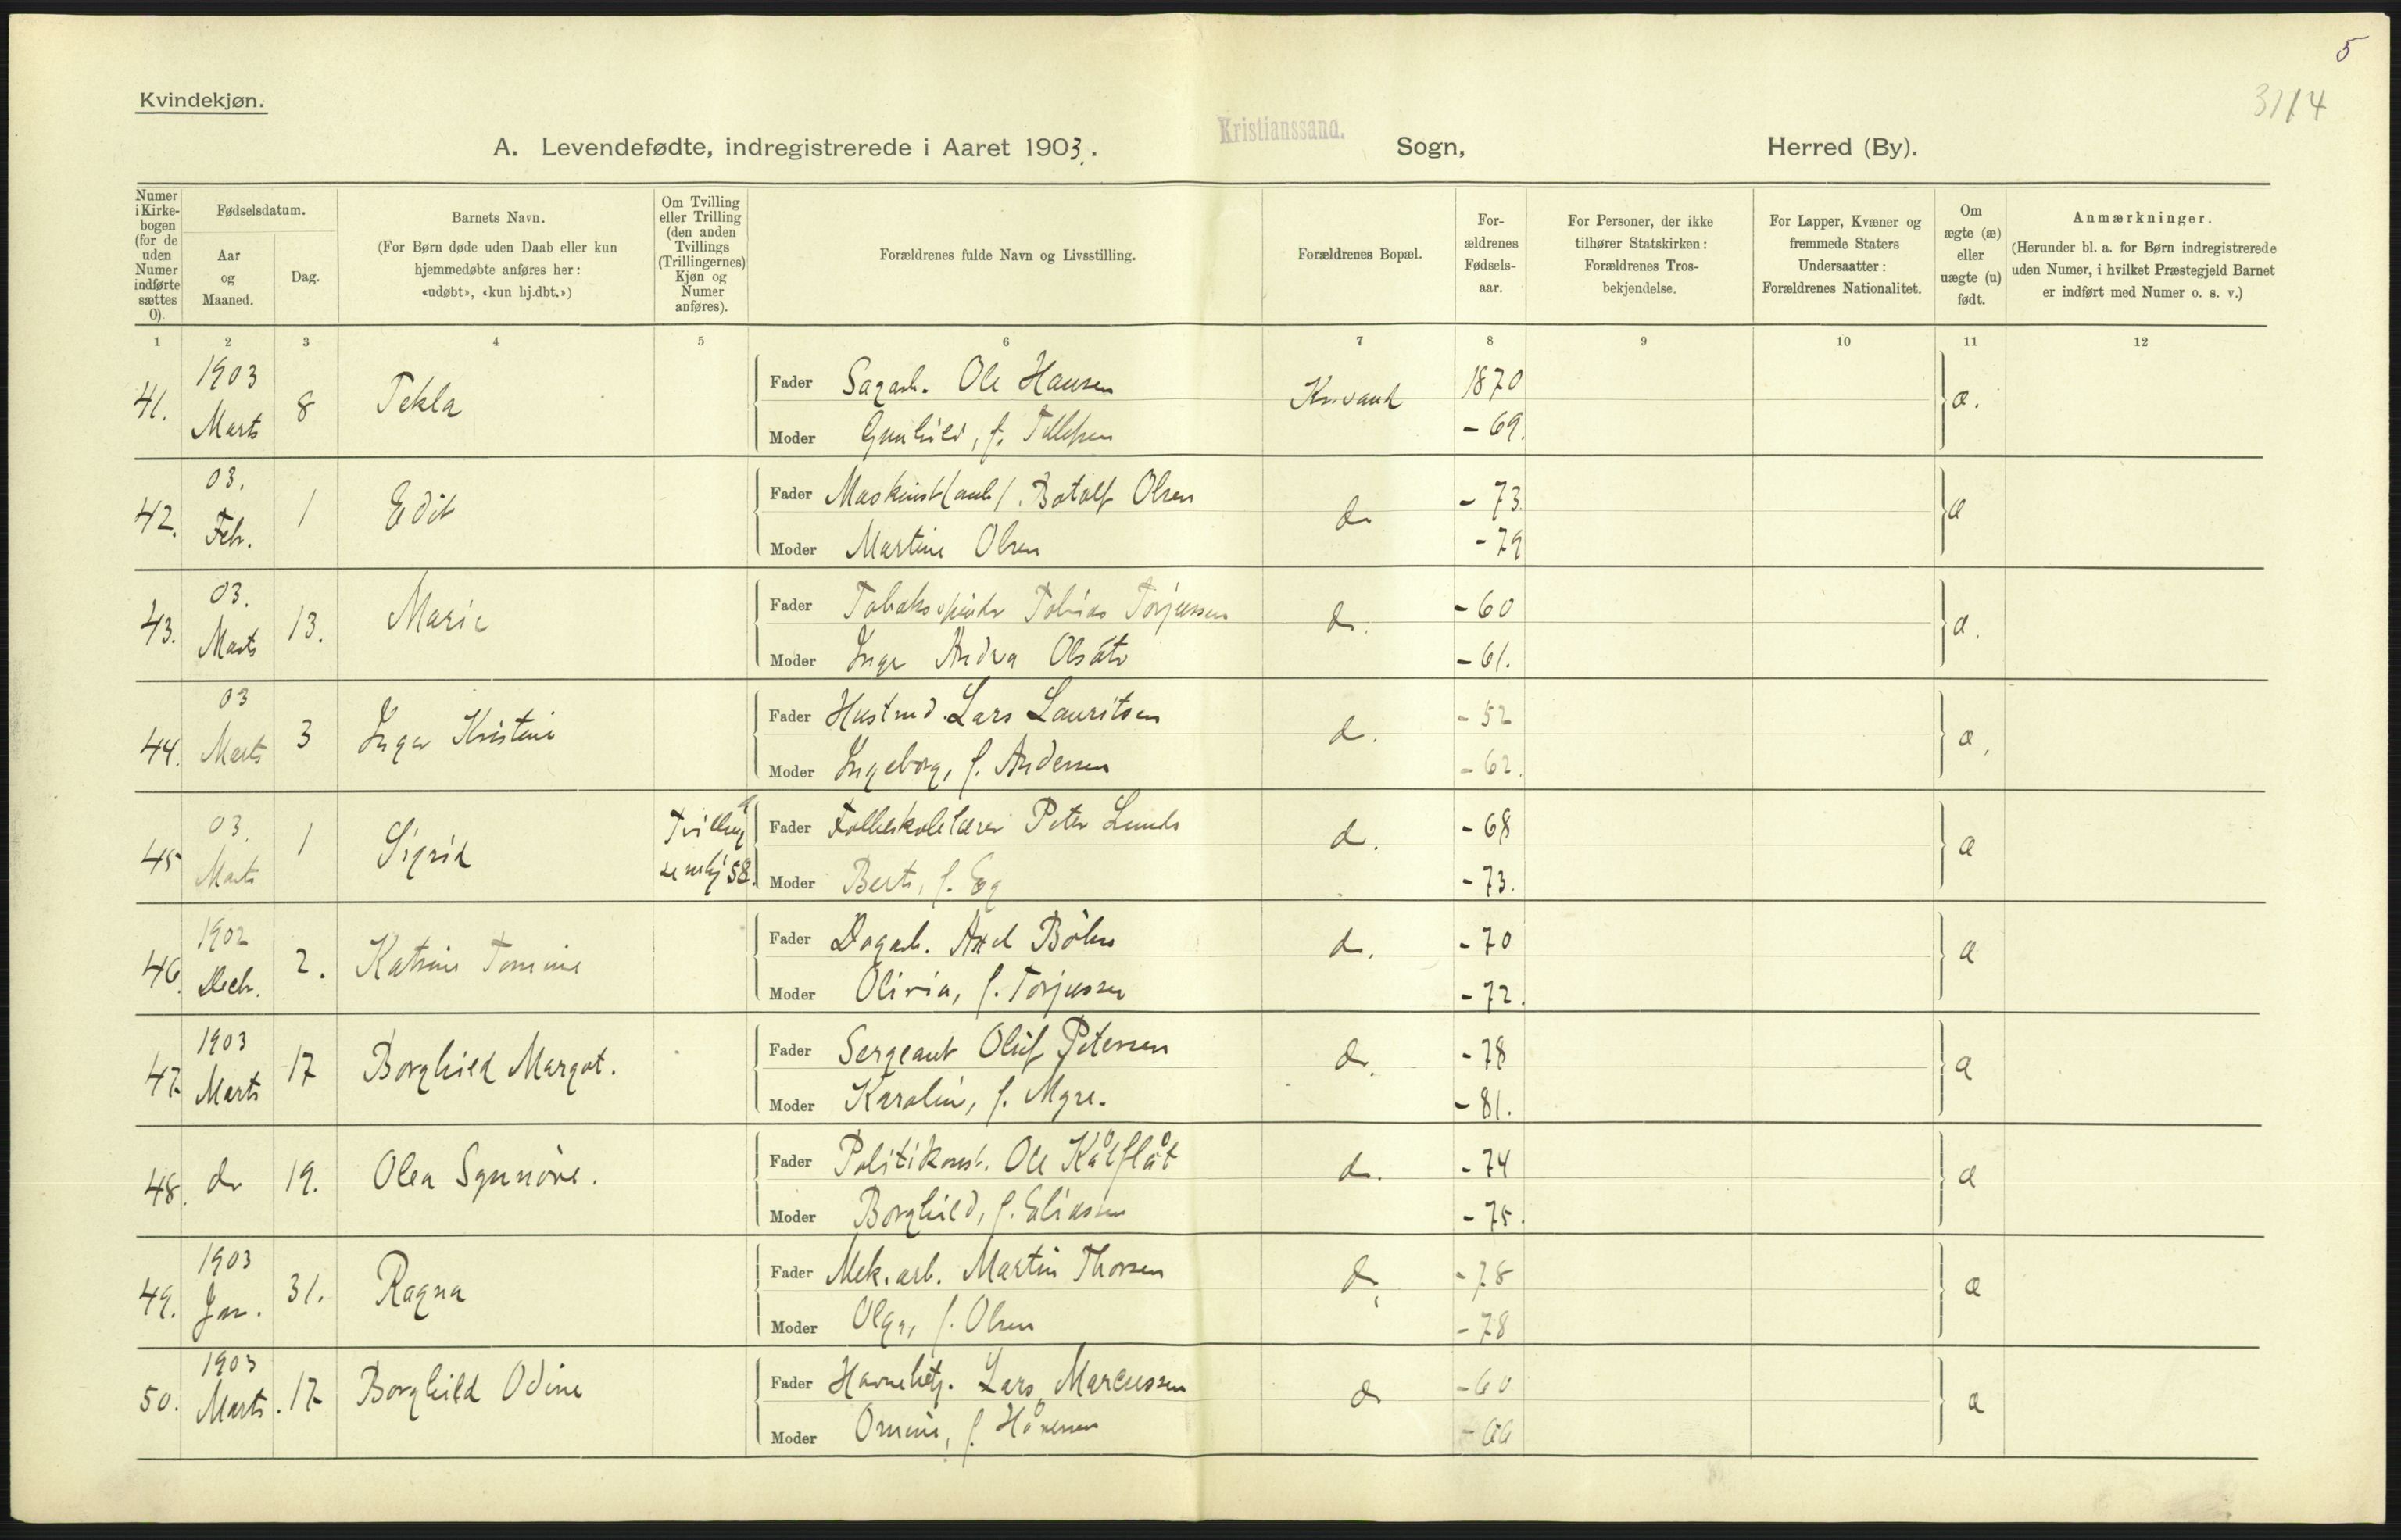 5
3114
Kvindekjøn.
Kristianssand.
A. Levendefødte, indregistrerede i Aaret 1903. Sogn, Herred (By).
Numer i Kirkebogen (for de uden Numer indførte sættes 0).
Fødselsdatum.
Aar og Maaned.
Dag.
Barnets Navn.
(For Børn døde uden Daab eller kun hjemmedøbte anføres her: «udøbt», «kun hj.dbt.»)
Om Tvilling eller Trilling (den anden Tvillings (Trillingernes) Kjøn og Numer anføres).
Forældrenes fulde Navn og Livsstilling.
Forældrenes Bopæl.
Forældrenes Fødselsaar.
For Personer, der ikke tilhører Statskirken: Forældrenes Trosbekjendelse.
For Lapper, Kvæner og fremmede Staters Undersaatter: Forældrenes Nationalitet.
Om ægte (æ) eller uægte (u) født.
Anmærkninger.
(Herunder bl. a. for Børn indregistrerede uden Numer, i hvilket Præstegjeld Barnet er indført med Numer o. s. v.)
1 2 3 4 5 6 7 8 9 10 11 12
41. 1903 Marts 8 Tekla Fader Sagarb. Ole Hansen Kr.sand 1870 æ.
Moder Gunhild, f. Tellefsen - 69.
42. 03. Feb. 1 Edit Fader Maskinist Botolf Olsen do - 73. æ
Moder Martine Olsen - 79
43. 03. Marts 13. Marie Fader Tobaksspinder Tobias Torjussen do. - 60 æ.
Moder Inger Andrea - 61.
44. 03 Marts 3 Inger Kristine Fader Lars Lauritsen do. - 52 æ.
Moder Ingeborg, f. Andersen - 62.
45 03. Marts 1 Sigrid Tvilling 58. Fader Folkeskolelærer Peter Lunde do. - 68 æ
Moder Berte, f. Eg - 73.
46. 1902 Decb. 2. Katrine Tomine Fader Dagarb. Axel Böhn do. - 70 æ
Moder Olivia, f. Torjussen - 72.
47. 1903 Marts 17 Borghild Margot. Fader Sergeant Oluf Petersen do. - 78 æ
Moder Karoline, f. Myre. - 81.
48. do 19. Olea Synnöve. Fader Politikonst. Ole Kålflåt do. - 74 æ
Moder Borghild, f. Eliassen - 75.
49. 1903 Jan. 31. Ragna Fader Mek. arb. Martin Thorsen do. - 78 æ
Moder Olga, f. Olsen - 78
50. 1903 Marts. 17 Borghild Odine Fader Havnebetj. Lars Marcussen do - 60 æ
Moder f. - 66